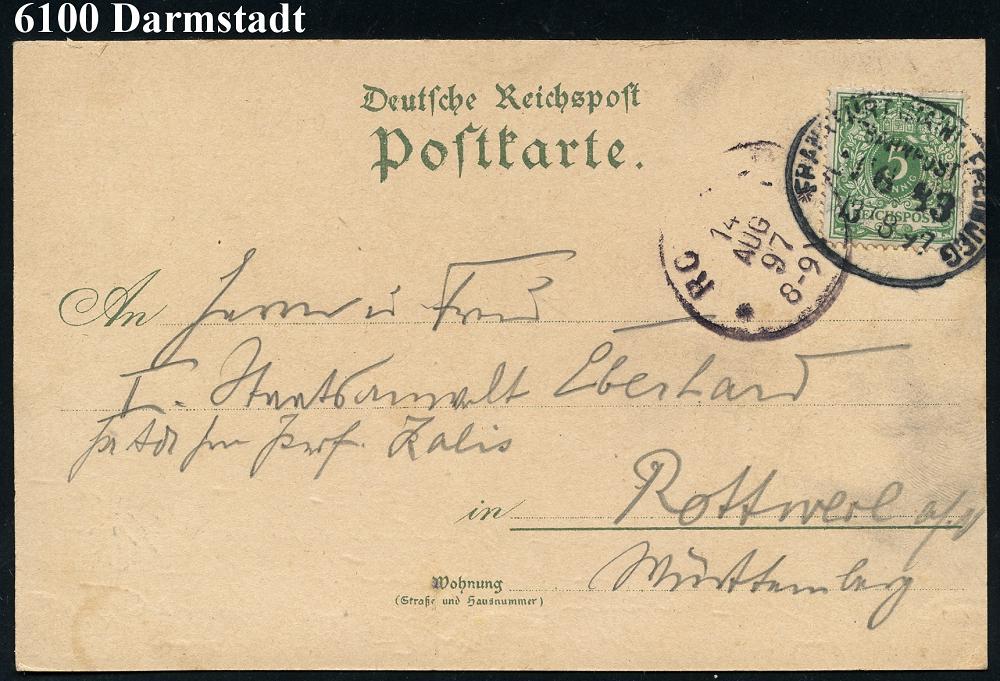 6100 Darmstadt
Deutsche Reichspost
Postkarte.
5
PFENNIG
REICHSPOST
BAHNPOST
13 8 97
14
AUG
97
8-9
An Herrn u Frau
I. Staatsanwalt Eberhard
Prof.
in Rottweil a/N
Württemberg
Wohnung
(Straße und Hausnummer)